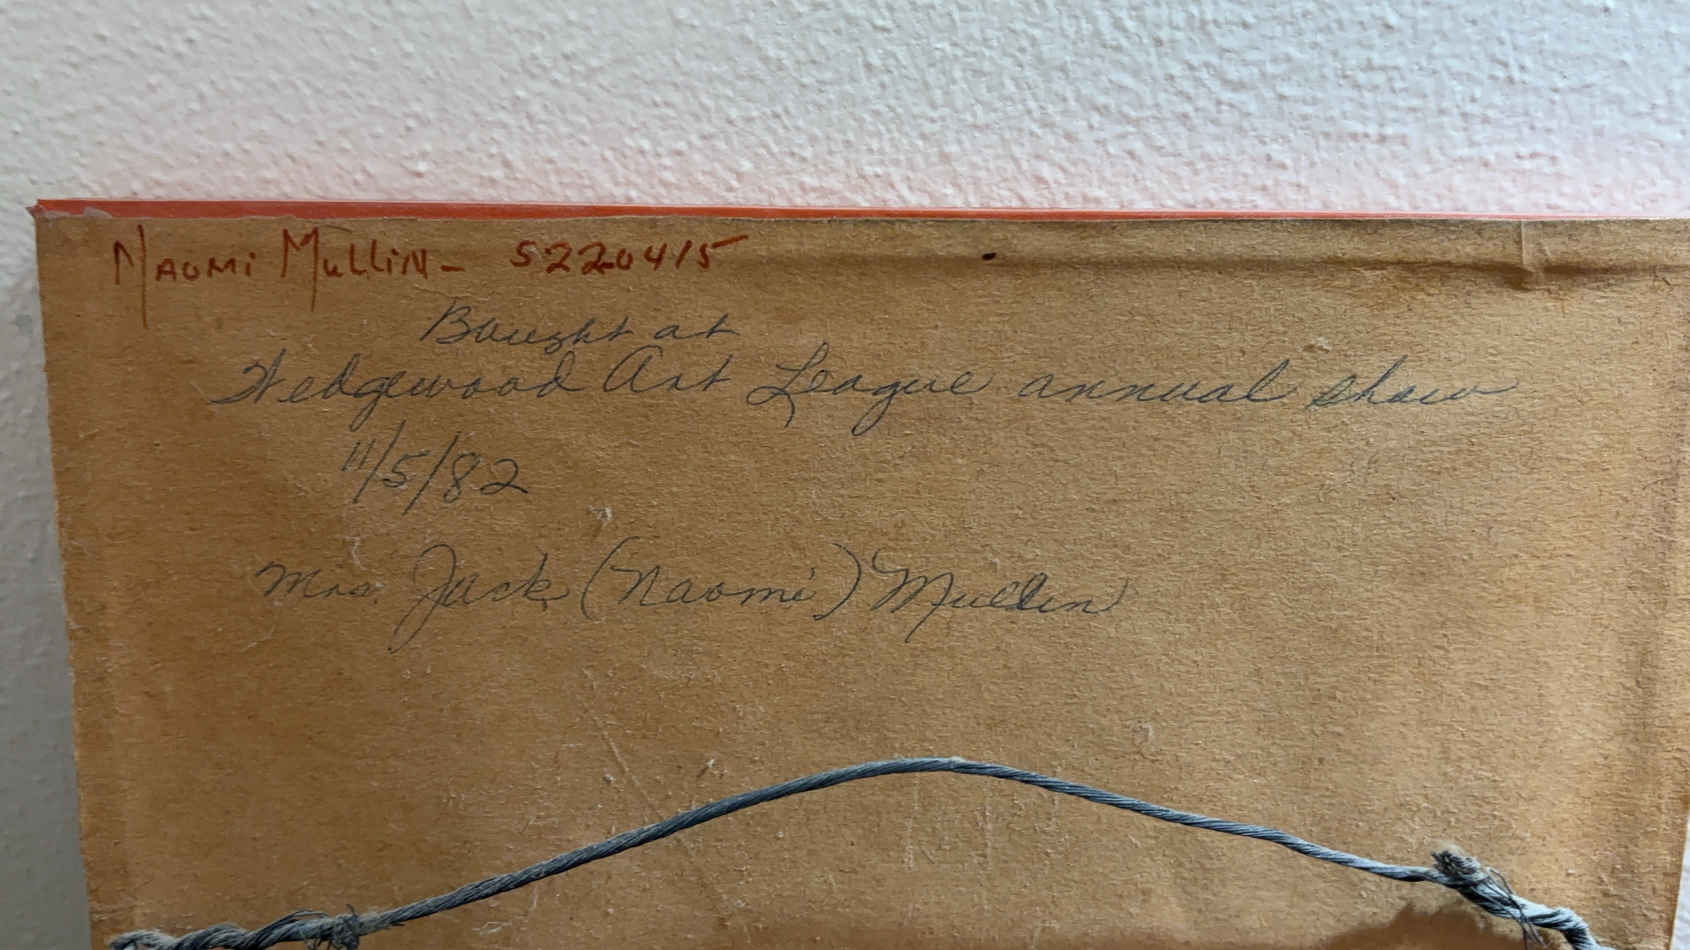 Naomi Mullin - 5220415
Bought at
Wedgewood Art League annual show
11/5/82
Mrs. Jack (Naomi) Mullin